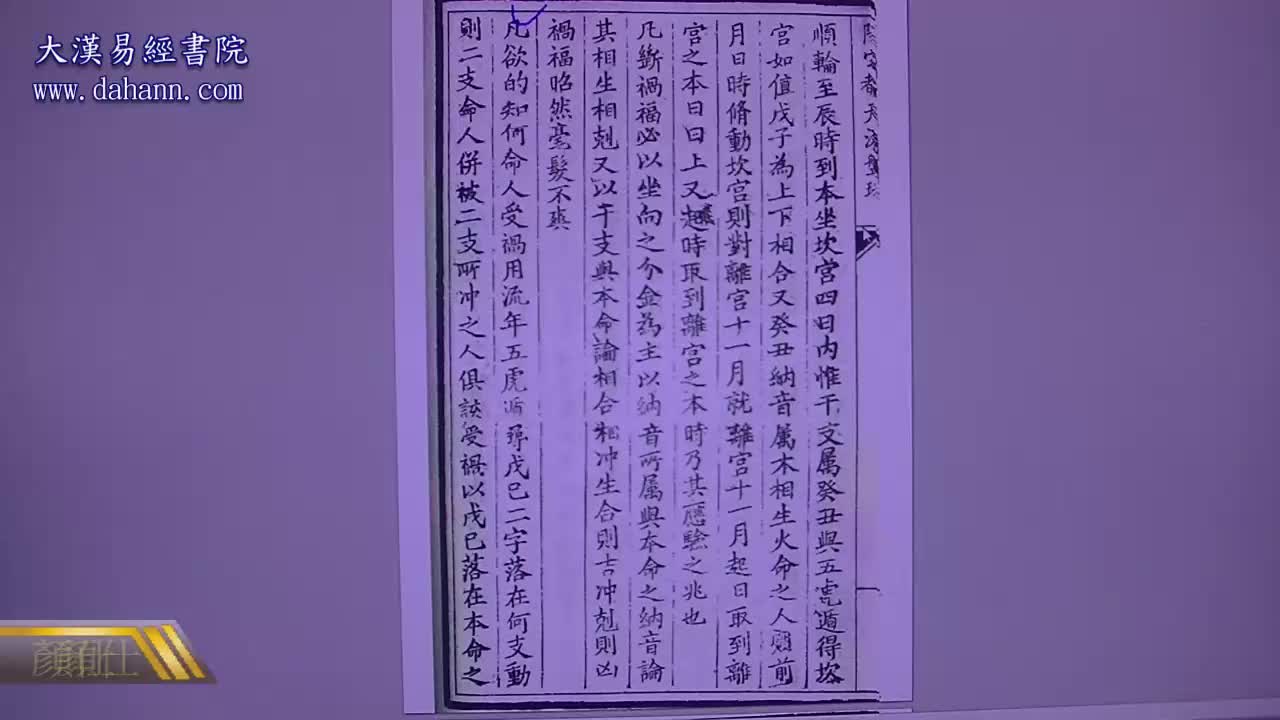 大漢易經書院
www.dahann.com
順輪至辰時到本坐坎宮四日內惟干支属癸丑與五虎遁得坎
宮如值戊子為上下相合又癸丑納音属木相生火命之人則前
月日時脩動坎宮則對離宮十一月就離宮十一月起日取到離
宮之本日日上又起時取到離宮之本時乃其應驗之兆也
凡斷禍福必以坐向之分金為主以納音所属與本命之納音論
其相生相剋又以干支與本命論相合相冲生合則吉冲剋則凶
禍福昭然毫髮不爽
凡欲的知何命人受禍用流年五虎遁尋戊己二字落在何支動
則二支命人併被二支所冲之人俱該受禍以戊己落在本命之
顏有仕